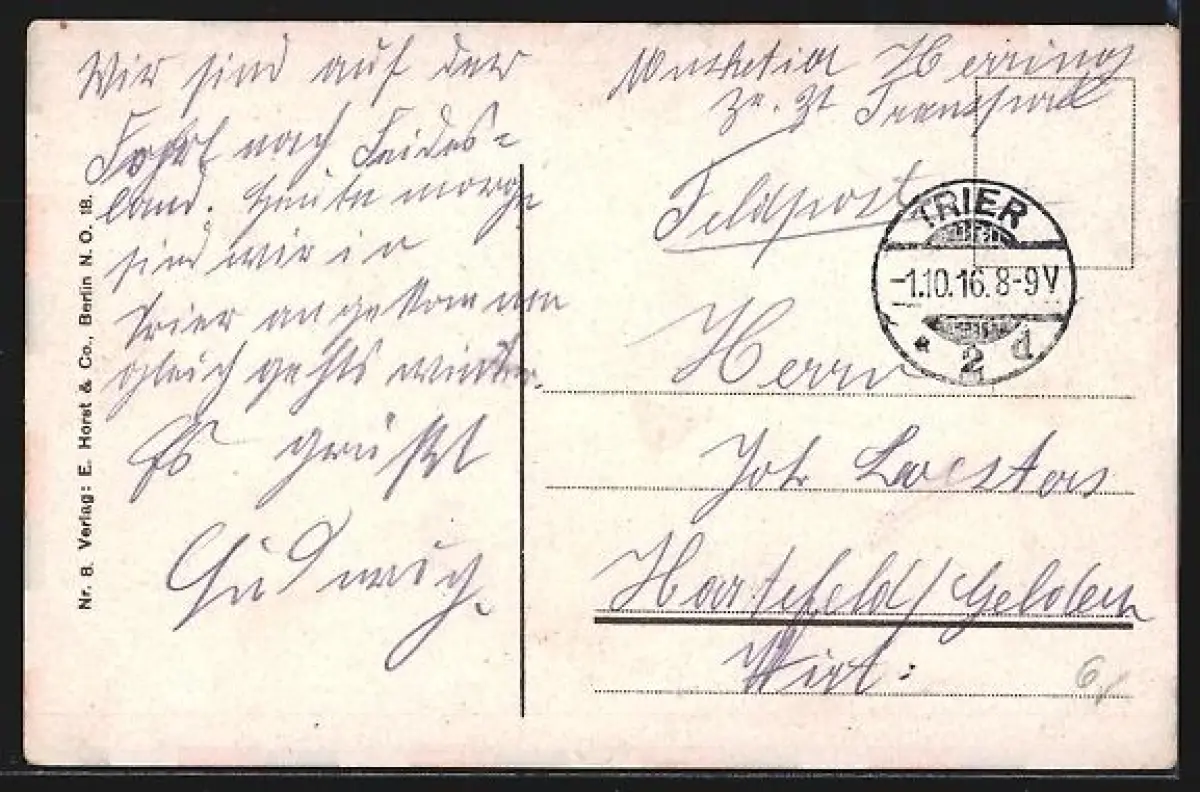 Wir sind auf der
Fahrt nach Feindes=
land. Heute morge
sind wir in
Trier angekommen
gleich gehts weiter.
Es grüßt
Ludwig.
Musketier Herring
zr. Zt Transport
Feldpost
TRIER
-1.10.16. 8-9V
* 2 d
Herrn
Joh
Hartefeld/Geldern
Wirt:
6,
Nr. 8. Verlag: E. Horst & Co., Berlin N. O. 18.